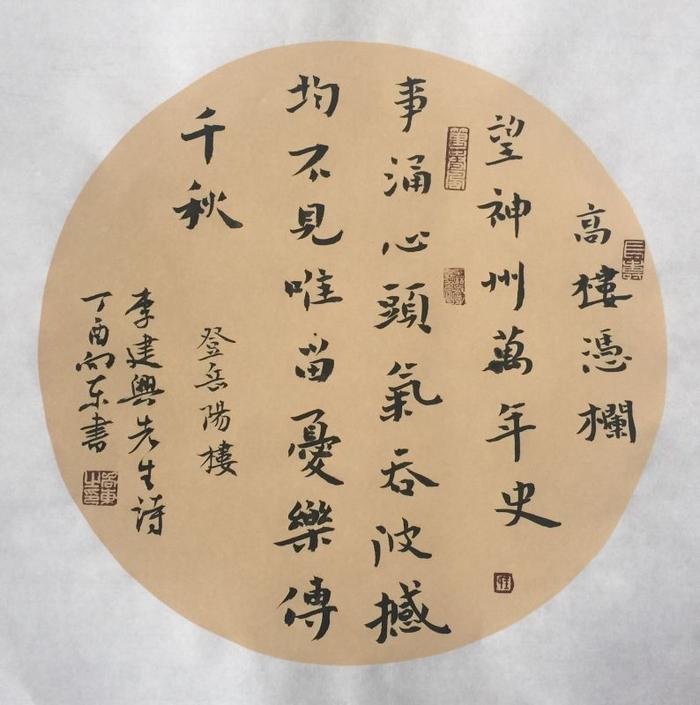 高樓憑欄
望神州萬年史
事涌心頭氣吞波撼
均不見唯留憂樂傳
千秋
登岳陽樓
李建興先生詩
丁酉尚东書